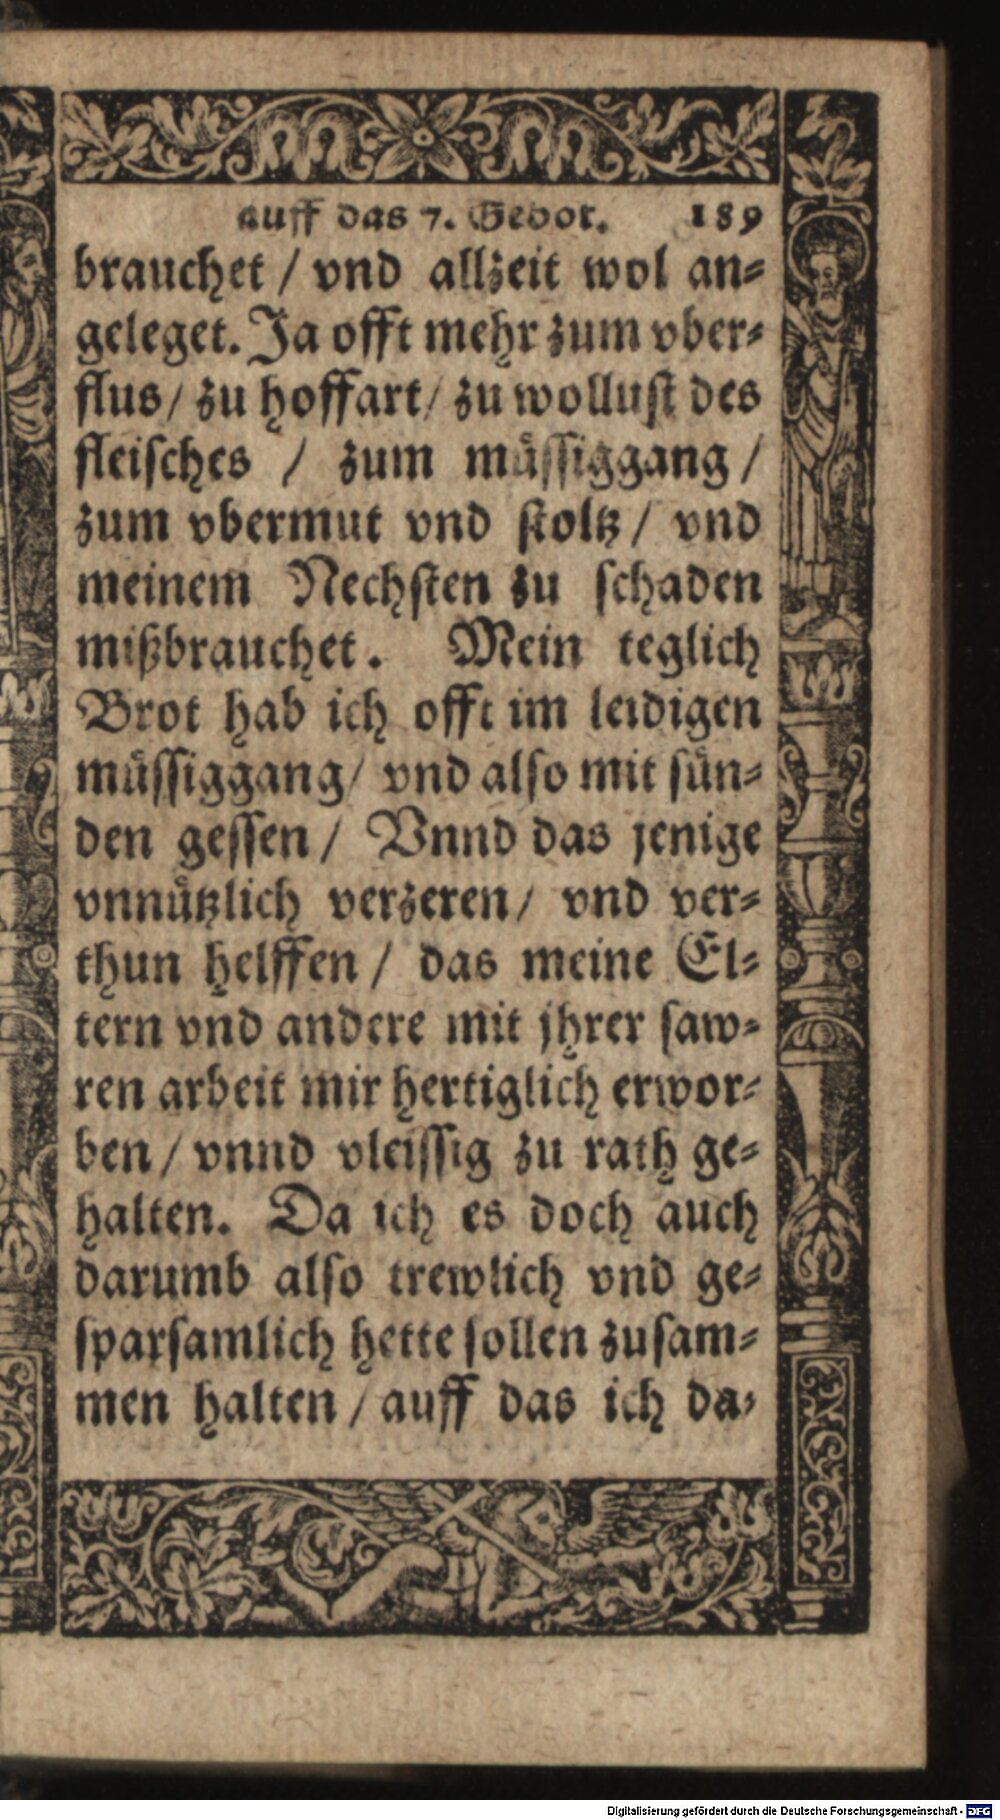 auff das 7. Gebot. 189
brauchet / vnd allzeit wol an⸗
geleget. Ja offt mehr zum vber⸗
flus / zu hoffart / zu wollust des
fleisches / zum müssiggang /
zum vbermut vnd stoltz / vnd
meinem Nechsten zu schaden
mißbrauchet. Mein teglich
Brot hab ich offt im leidigen
müssiggang / vnd also mit sün⸗
den gessen / Vnnd das jenige
vnnützlich verzeren / vnd ver⸗
thun helffen / das meine El⸗
tern vnd andere mit jhrer saw⸗
ren arbeit mir hertiglich erwor⸗
ben / vnnd vleissig zu rath ge⸗
halten. Da ich es doch auch
darumb also trewlich vnd ge⸗
sparsamlich hette sollen zusam⸗
men halten / auff das ich da⸗
Digitalisierung gefördert durch die Deutsche Forschungsgemeinschaft - DFG